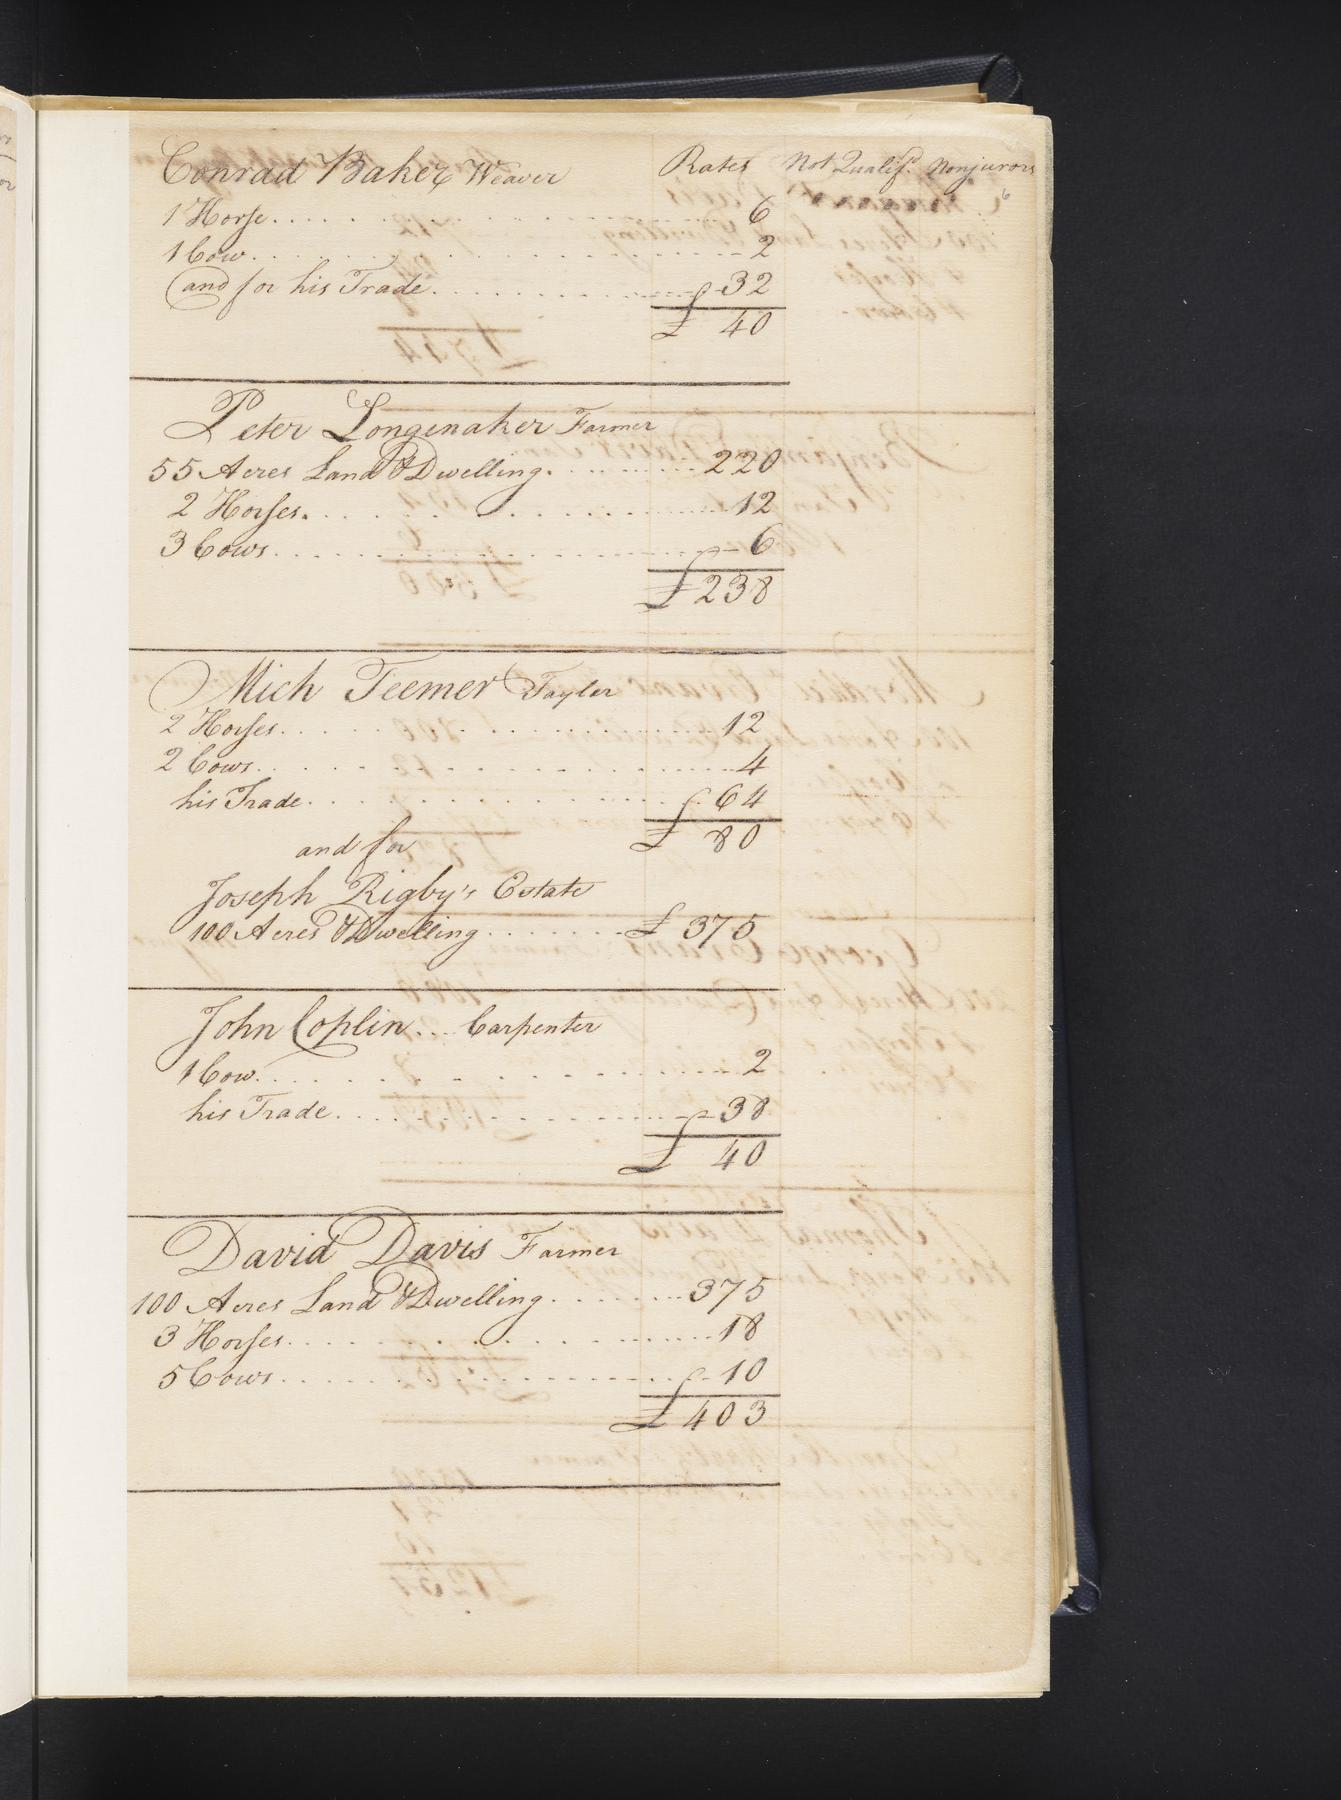 Conrad Baker Weaver Rates Not Qualifd. Nonjurors
6
1 Horse 6
1 Cow 2
and for his Trade 32
£ 40
Peter Longenaker Farmer
55 Acres Land & Dwelling 220
2 Horses 12
3 Cows 6
£ 238
Mich Teemer Taylor
2 Horses 12
2 Cows 4
his Trade 64
£ 80
and for
Joseph Rigby's Estate
100 Acres & Dwelling £ 375
John Coplin Carpenter
1 Cow 2
his Trade 38
£ 40
David Davis Farmer
100 Acres Land & Dwelling 375
3 Horses 18
5 Cows 10
£ 403